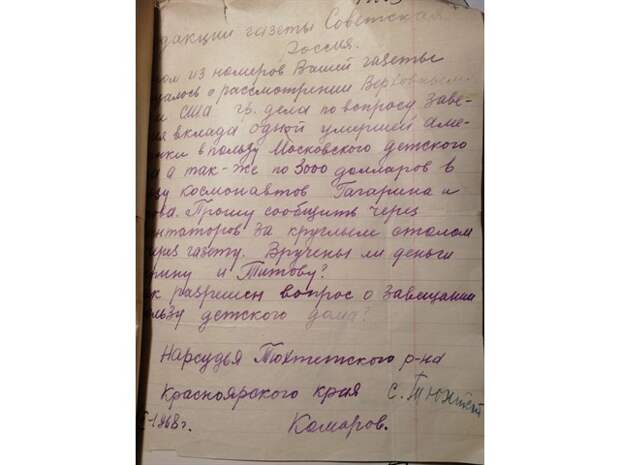 дакции газеты Советская
Россия.
ом из номеров Вашей газеты
алось о рассмотрении Верховным
США гр. дела по вопросу заве-
вклада одной умершей аме-
ки в пользу Московского детского
а так-же по 3000 долларов в
зу космонавтов Гагарина и
ва. Прошу сообщить через
нтаторов за круглым столом
через газету. Вручены ли деньги
рину и Титову?
к разрешен вопрос о завещании
льзу детского дома?
Нарсудья Тюхтетского р-на
Красноярского края с. Тюхтет
1968 г. Комаров.